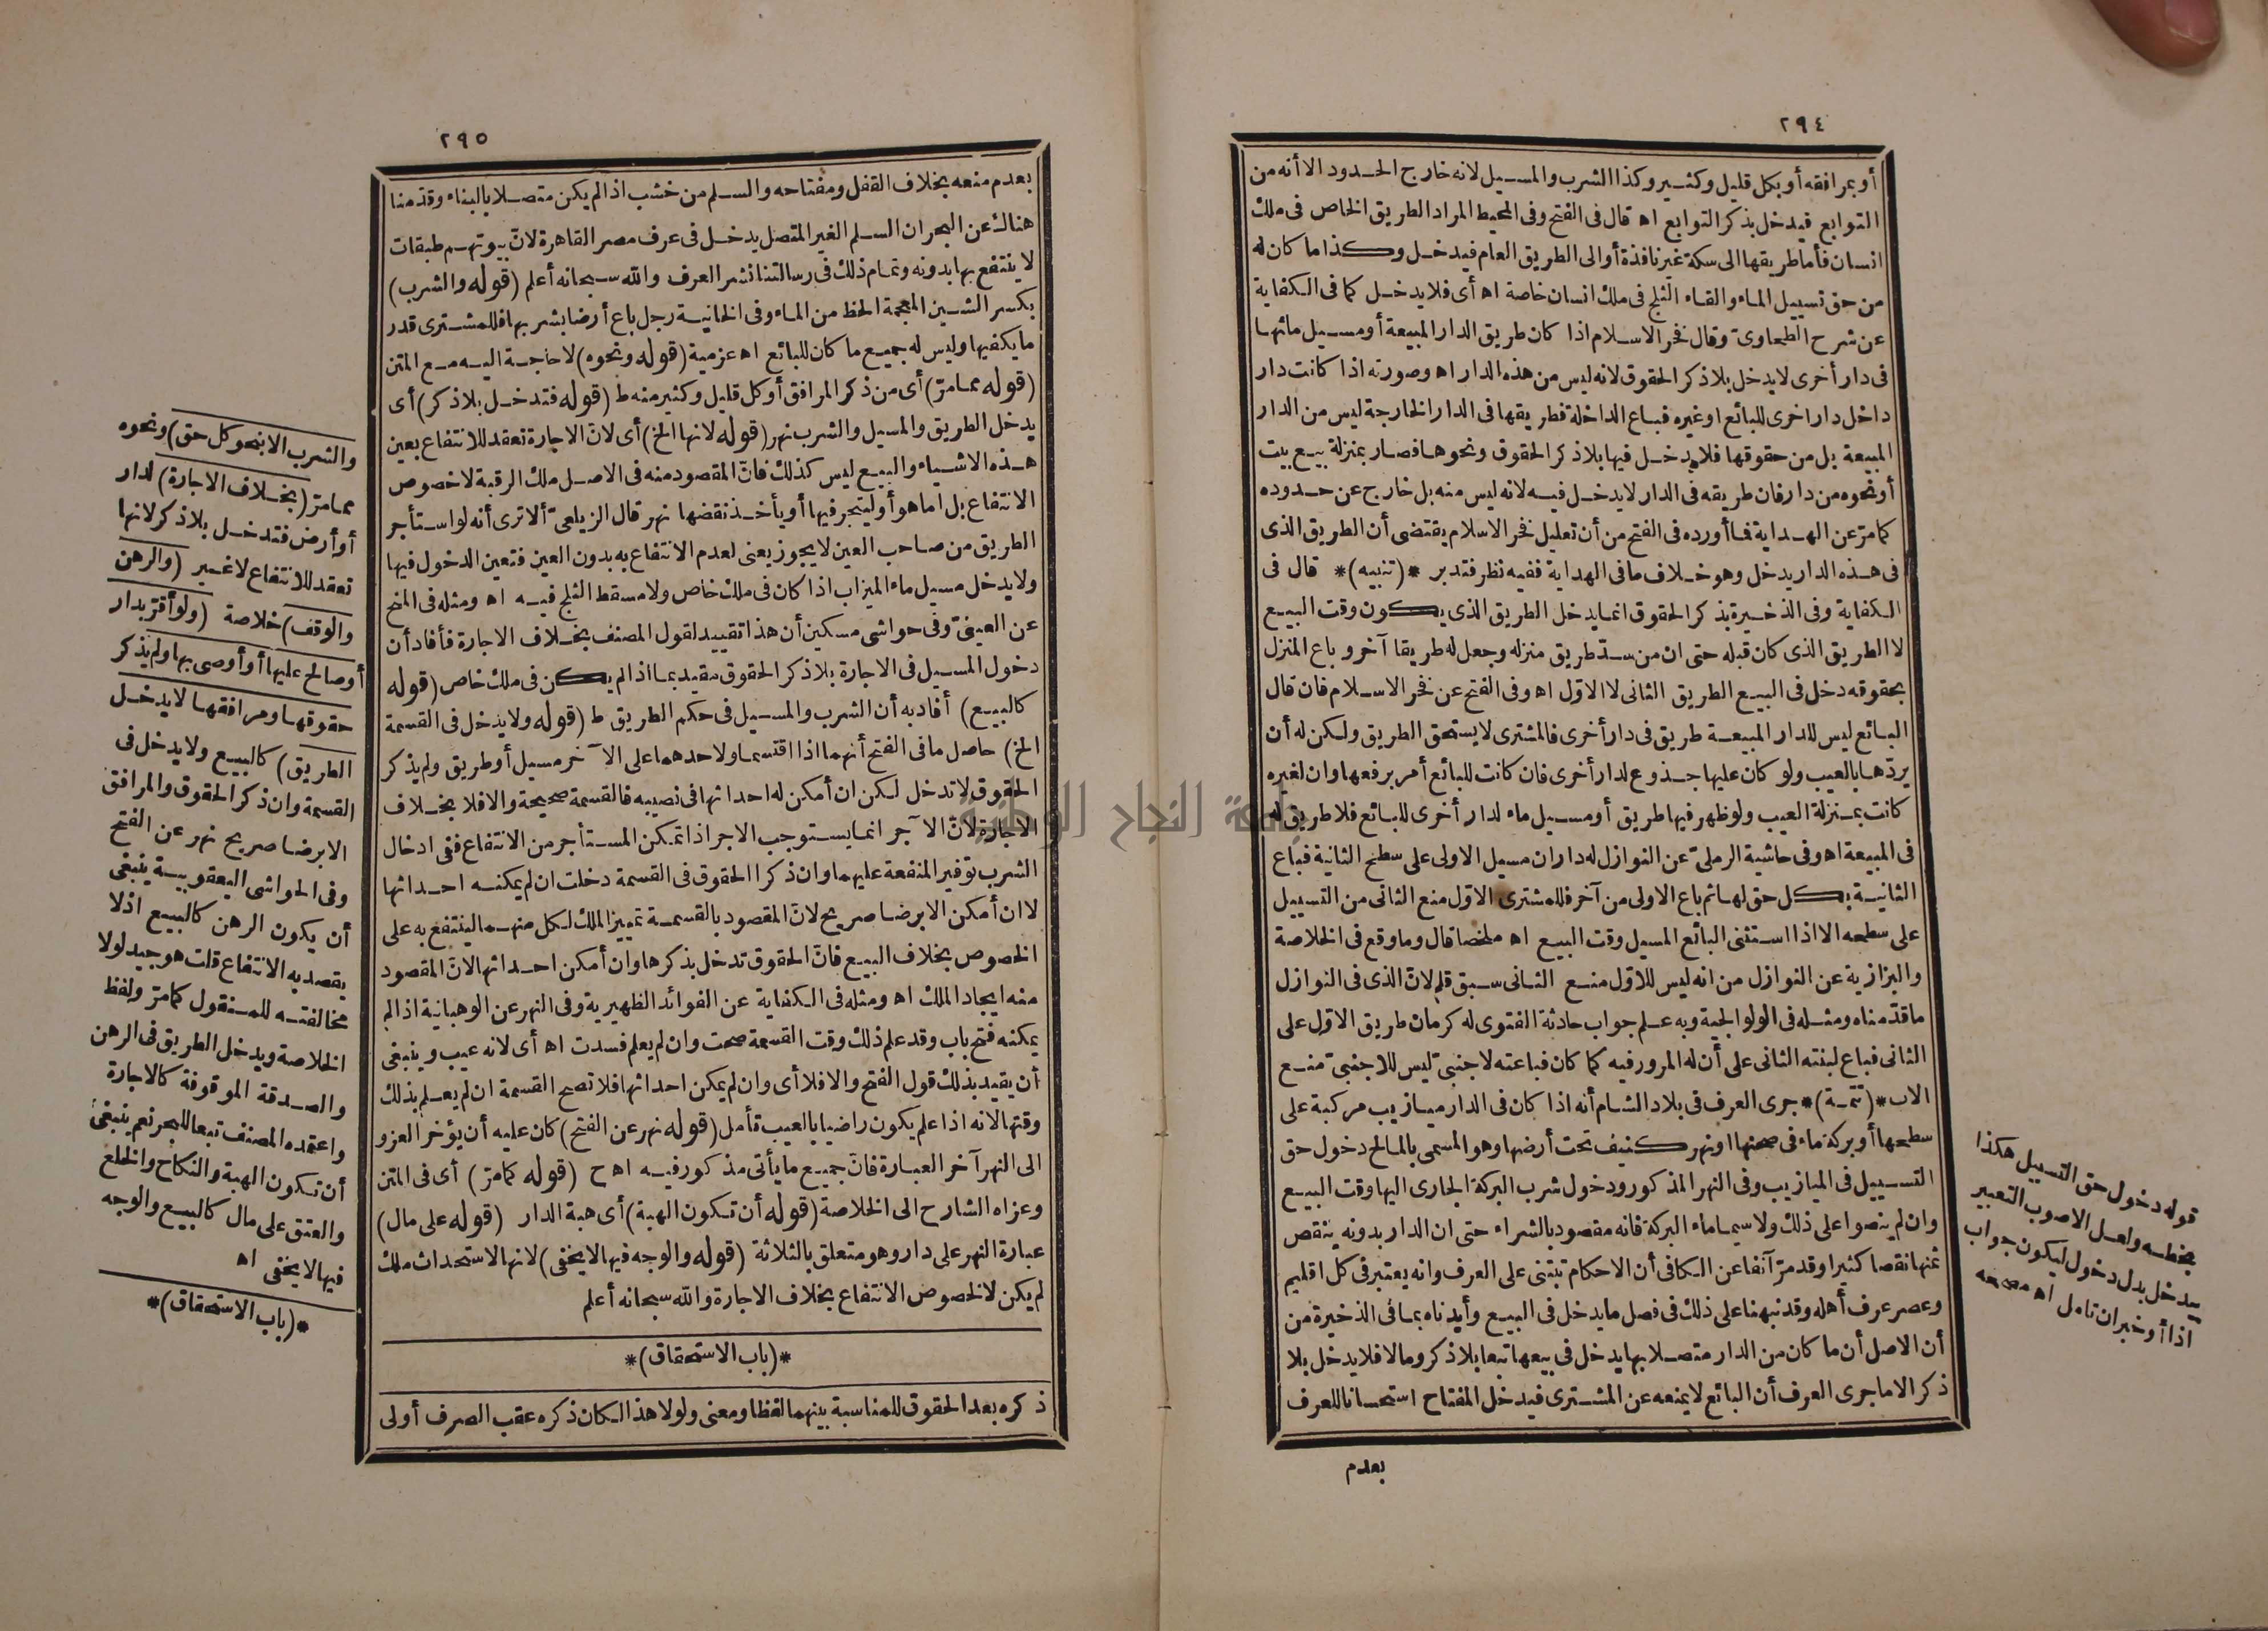 ٢٩٤
أو بمرافقه أو بكل قليل وكثير وكذا الشرب والمسيل لانه خارج الحدود الا أنه من
التوابع فيدخل بذكر التوابع اه قال فى الفتح وفى المحيط المراد الطريق الخاص فى ملك
انسان فأما طريقها الى سكة غير نافذة أو الى الطريق العام فيدخل وكذا ما كان له
من حق تسييل الماء والقاء الثلج فى ملك انسان خاصة اه أى فلا يدخل كما فى الكفاية
عن شرح الطحاوى وقال فخر الاسلام اذا كان طريق الدار المبيعة أو مسيل مائها
فى دار أخرى لا يدخل بلا ذكر الحقوق لانه ليس من هذه الدار اه وصورته اذا كانت دار
داخل دار اخرى للبائع او غيره فباع الداخلة فطريقها فى الدار الخارجة ليس من الدار
المبيعة بل من حقوقها فلا يدخل فيها بلا ذكر الحقوق ونحوها فصار بمنزلة بيع بيت
أو نحوه من دار فان طريقه فى الدار لا يدخل فيه لانه ليس منه بل خارج عن حدوده
كما مرّ عن الهداية فما أورده فى الفتح من أن تعليل فخر الاسلام يقتضى أن الطريق الذى
فى هذه الدار يدخل وهو خلاف ما فى الهداية ففيه نظر فتدبر *(تنبيه)* قال فى
الكفاية وفى الذخيرة بذكر الحقوق انما يدخل الطريق الذى يكون وقت البيع
لا الطريق الذى كان قبله حتى ان من سدّ طريق منزله وجعل له طريقا آخر وباع المنزل
بحقوقه دخل فى البيع الطريق الثانى لا الاوّل اه وفى الفتح عن فخر الاسلام فان قال
البائع ليس للدار المبيعة طريق فى دار أخرى فالمشترى لا يستحق الطريق ولكن له أن
يردّها بالعيب ولو كان عليها جذوع لدار أخرى فان كانت للبائع أمر برفعها وان لغيره
كانت بمنزلة العيب ولو ظهر فيها طريق أو مسيل ماء لدار أخرى للبائع فلا طريق له
فى المبيعة اه وفى حاشية الرملىّ عن النوازل له داران مسيل الاولى على سطح الثانية فباع
الثانية بكل حق لها ثم باع الاولى من آخر فللمشترى الاوّل منع الثانى من التسييل
على سطحه الا اذا استثنى البائع المسيل وقت البيع اه ملخصا قال وما وقع فى الخلاصة
والبزازية عن النوازل من انه ليس للاوّل منع الثانى سبق قلم لانّ الذى فى النوازل
ما قدّمناه ومثله فى الولوالجية وبه علم جواب حادثة الفتوى له كرمان طريق الاوّل على
الثانى فباع لبنته الثانى على أن له المرور فيه كما كان فباعته لاجنبىّ ليس للاجنبىّ منع
الاب *(تتمة)* جرى العرف فى بلاد الشام أنه اذا كان فى الدار ميازيب مركبة على
سطحها أو بركة ماء فى صحنها او نهر كنيف تحت أرضها وهو المسمى بالمالح دخول حق
التسييل فى الميازيب وفى النهر المذكور ودخول شرب البركة الجارى اليها وقت البيع
وان لم ينصوا على ذلك ولا سيما ماء البركة فانه مقصود بالشراء حتى ان الدار بدونه ينقص
ثمنها نقصا كثيرا وقد مرّ آنفا عن الكافى أن الاحكام تبتنى على العرف وانه يعتبر فى كل اقليم
وعصر عرف أهله وقد نبهنا على ذلك فى فصل ما يدخل فى البيع وأيدناه بما فى الذخيرة من
أن الاصل أن ما كان من الدار متصلا بها يدخل فى بيعها تبعا بلا ذكر وما لا فلا يدخل بلا
ذكر الا ما جرى العرف أن البائع لا يمنعه عن المشترى فيدخل المفتاح استحسانا للعرف
بعدم
قوله دخول حق التسييل هكذا
بخطه ولعل الاصوب التعبير
بيدخل بدل دخول ليكون جواب
اذا أو خبر ان تامل اه مصححه
٢٩٥
بعدم منعه بخلاف القفل ومفتاحه والسلم من خشب اذا لم يكن متصلا بالبناء وقدّمنا
هناك عن البحر ان السلم الغير المتصل يدخل فى عرف مصر القاهرة لانّ بيوتهم طبقات
لا ينتفع بها بدونه وتمام ذلك فى رسالتنا نشر العرف والله سبحانه أعلم (قوله والشرب)
بكسر الشين المعجمة الحظ من الماء وفى الخانية رجل باع أرضا بشربها فللمشترى قدر
ما يكفيها وليس له جميع ما كان للبائع اه عزمية (قوله ونحوه) لا حاجة اليه مع المتن
(قوله مما مرّ) أى من ذكر المرافق أو كل قليل وكثير منه ط (قوله فتدخل بلا ذكر) أى
يدخل الطريق والمسيل والشرب نهر (قوله لانها الخ) أى لانّ الاجارة تعقد للانتفاع بعين
هذه الاشياء والبيع ليس كذلك فانّ المقصود منه فى الاصل ملك الرقبة لا خصوص
الانتفاع بل اما هو أو ليتجر فيها أو يأخذ نقضها نهر قال الزيلعىّ ألا ترى أنه لو استأجر
الطريق من صاحب العين لا يجوز يعنى لعدم الانتفاع به بدون العين فتعين الدخول فيها
ولا يدخل مسيل ماء الميزاب اذا كان فى ملك خاص ولا مسقط الثلج فيه اه ومثله فى المنح
عن العينىّ وفى حواشى مسكين أن هذا تقييد لقول المصنف بخلاف الاجارة فأفاد أن
دخول المسيل فى الاجارة بلا ذكر الحقوق مقيد بما اذا لم يكن فى ملك خاص (قوله
كالبيع) أفاد به أن الشرب والمسيل فى حكم الطريق ط (قوله ولا يدخل فى القسمة
الخ) حاصل ما فى الفتح أنهما اذا اقتسما ولاحدهما على الآخر مسيل أو طريق ولم يذكر
الحقوق لا تدخل لكن ان أمكن له احداثها فى نصيبه فالقسمة صحيحة والا فلا بخلاف
الاجارة لانّ الآجر انما يستوجب الاجر اذا تمكن المستأجر من الانتفاع ففى ادخال
الشرب توفير المنفعة عليهما وان ذكرا الحقوق فى القسمة دخلت ان لم يمكنه احداثها
لا ان أمكن الا برضا صريح لانّ المقصود بالقسمة تمييز الملك لكل منهما لينتفع به على
الخصوص بخلاف البيع فانّ الحقوق تدخل بذكرها وان أمكن احداثها لانّ المقصود
منه ايجاد الملك اه ومثله فى الكفاية عن الفوائد الظهيرية وفى النهر عن الوهبانية اذا لم
يمكنه فتح باب وقد علم ذلك وقت القسمة صحت وان لم يعلم فسدت اه أى لانه عيب وينبغى
أن يقيد بذلك قول الفتح والا فلا أى وان لم يمكن احداثها فلا تصح القسمة ان لم يعلم بذلك
وقتها لانه اذا علم يكون راضيا بالعيب تأمل (قوله نهر عن الفتح) كان عليه أن يؤخر العزو
الى النهر آخر العبارة فانّ جميع ما يأتى مذكور فيه اه ح (قوله كما مرّ) أى فى المتن
وعزاه الشارح الى الخلاصة (قوله أن تكون الهبة) أى هبة الدار (قوله على مال)
عبارة النهر على دار وهو متعلق بالثلاثة (قوله والوجه فيها لا يخفى) لانها لاستحداث ملك
لم يكن لا لخصوص الانتفاع بخلاف الاجارة والله سبحانه أعلم
*(باب الاستحقاق)*
ذكره بعد الحقوق للمناسبة بينهما لفظا ومعنى ولولا هذا لكان ذكره عقب الصرف أولى
والشرب الا بنحو كل حق) ونحوه
مما مرّ (بخلاف الاجارة) لدار
أو أرض فتدخل بلا ذكر لانها
تعقد للانتفاع لا غير (والرهن
والوقف) خلاصة (ولو أقرّ بدار
أو صالح عليها أو أوصى بها ولم يذكر
حقوقها ومرافقها لا يدخل
الطريق) كالبيع ولا يدخل فى
القسمة وان ذكر الحقوق والمرافق
الا برضا صريح نهر عن الفتح
وفى الحواشى اليعقوبية ينبغى
أن يكون الرهن كالبيع اذ لا
يقصد به الانتفاع قلت هو جيد لولا
مخالفته للمنقول كما مرّ ولفظ
الخلاصة ويدخل الطريق فى الرهن
والصدقة الموقوفة كالاجارة
واعتمده المصنف تبعا للبحر نعم ينبغى
أن تكون الهبة والنكاح والخلع
والعتق على مال كالبيع والوجه
فيها لا يخفى اه
*(باب الاستحقاق)*
جامعة النجاح الوطنية